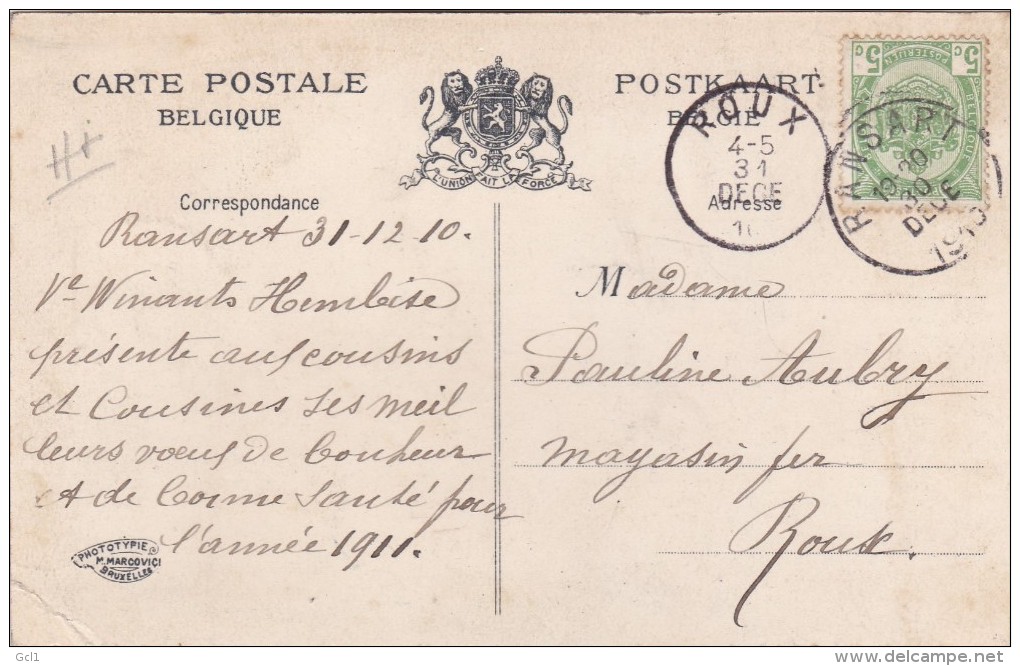 CARTE POSTALE
BELGIQUE
POSTKAART
BELGIE
L'UNION FAIT LA FORCE
5 c POSTERIJEN c 5
ROUX
4-5
31
DECE
10
RANSART
19 30
30
DECE
1910
Correspondance
Adresse
Ransart 31-12-10.
Ve Winants Hembise
présente aux cousins
et Cousines ses meil
leurs voeux de bonheur
et de bonne santé pour
l'année 1911.
Madame
Pauline Aubry
magasin fer
Roux.
PHOTOTYPIE
M. MARCOVICI
BRUXELLES
Gcl1